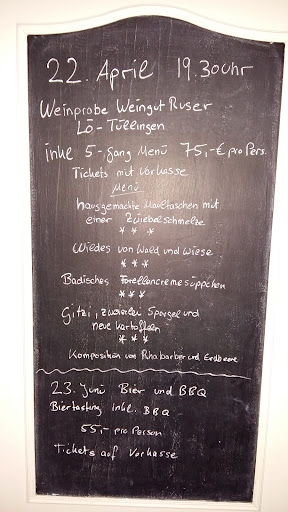 22. April 19.30 Uhr
Weinprobe Weingut Ruser
Lö-Tüllingen
inkl 5-Gang Menü 75,-€ pro Pers.
Tickets mit Vorkasse
Menü
hausgemachte Maultaschen mit
einer Zwiebelschmelze
***
Wildes von Wald und Wiese
***
Badisches Forellencremesüppchen
***
Gitzi, zweierlei Spargel und
neue Kartoffeln
***
Komposition von Rhabarber und Erdbeere
23. Juni Bier und BBQ
Biertasting inkl. BBQ
55,- pro Person
Tickets auf Vorkasse